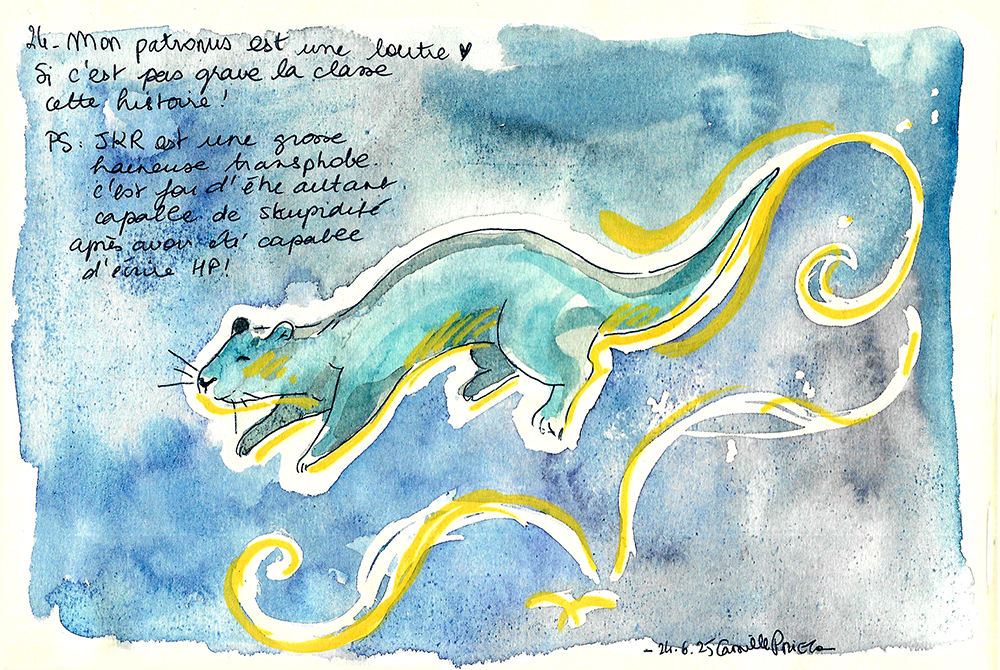 24_ Mon patronus est une loutre ♥
Si c'est pas grave la classe
cette histoire!
PS: JKR est une grosse
haineuse transphobe
c'est fou d'être autant
capable de stupidité
après avoir été capable
d'écrire HP!
_ 24.6.25 Camille